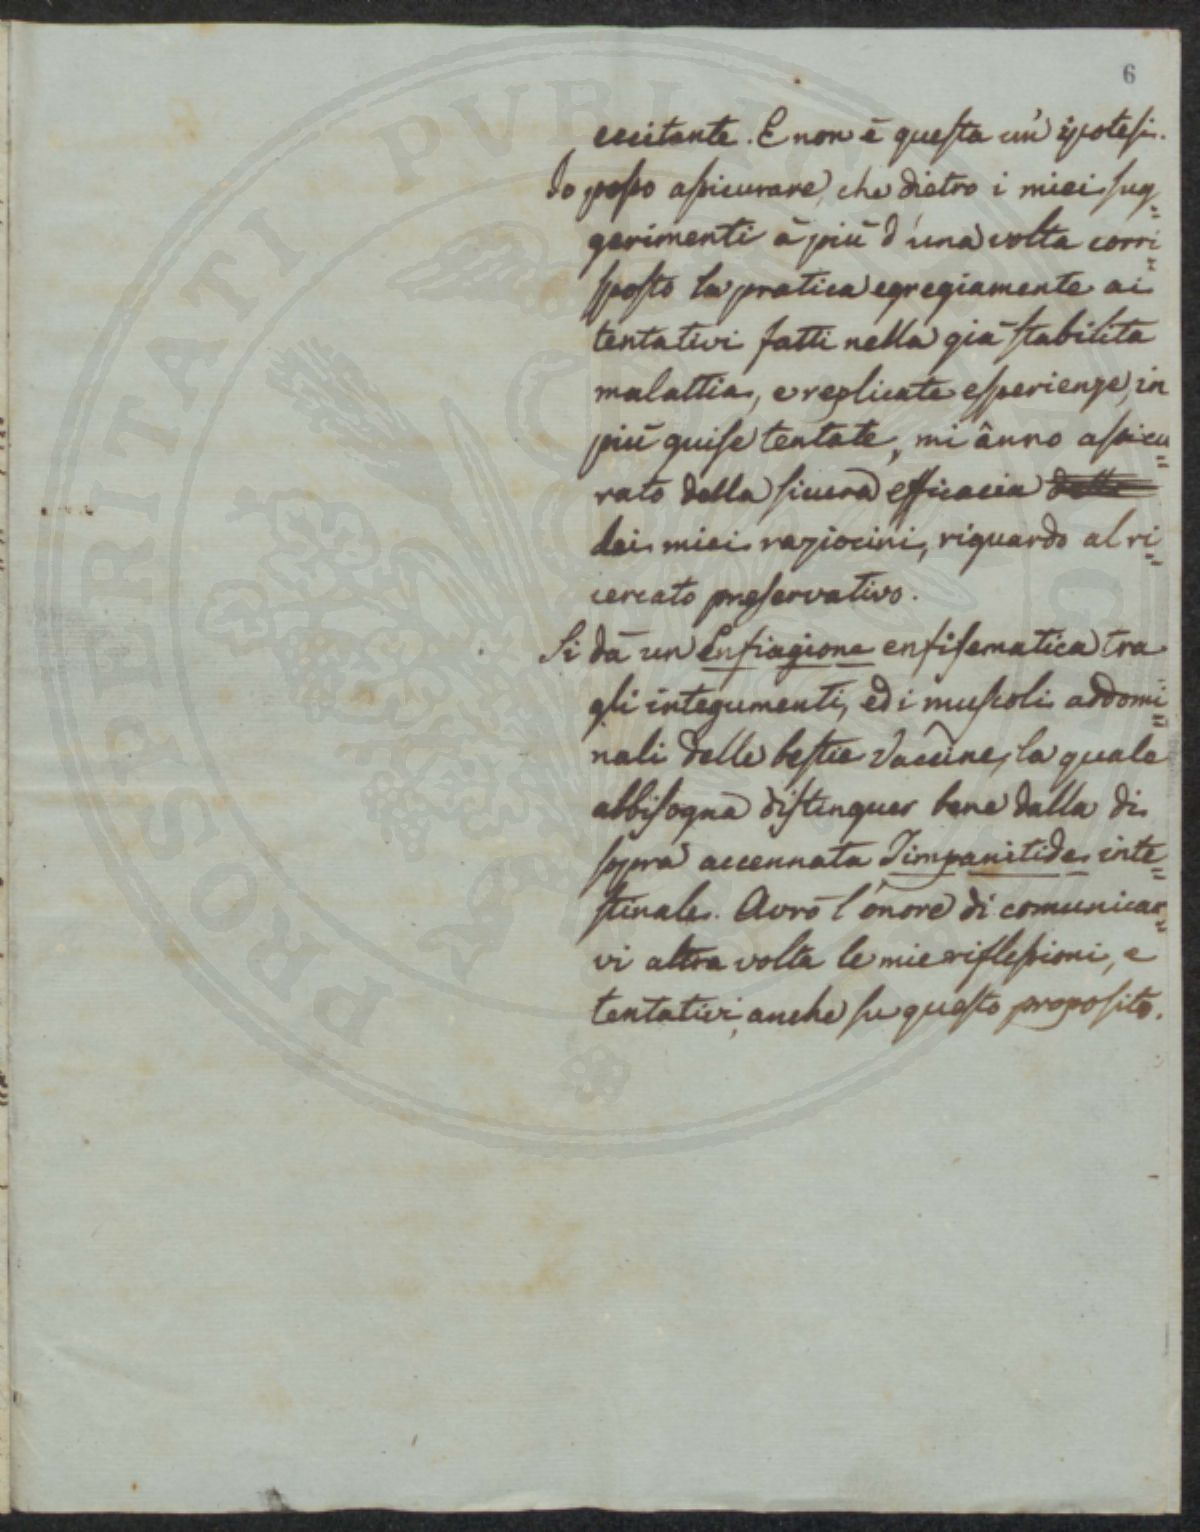 6
eccitante. E non è questa un' ipotesi.
Io posso assicurare, che dietro i miei sug=
gerimenti à più d'una volta corri=
sposto la pratica egregiamente ai
tentativi fatti nella già stabilita
malattia, e replicate esperienze, in
più guise tentate, mi ànno assicu=
rato della sicura efficacia delle
dei miei raziocini, riguardo al ri=
cercato preservativo.
Si dà un Enfiagione enfisematica tra
gli integumenti, ed i muscoli addomi=
nali delle bestie Vaccine, la quale
abbisogna distinguer bene dalla di
sopra accennata Timpanitide inte=
stinale. Avrò l'onore di comunicar=
vi altra volta le mie riflessioni, e
tentativi anche su questo proposito.
PROSPERITATI PVBLIC